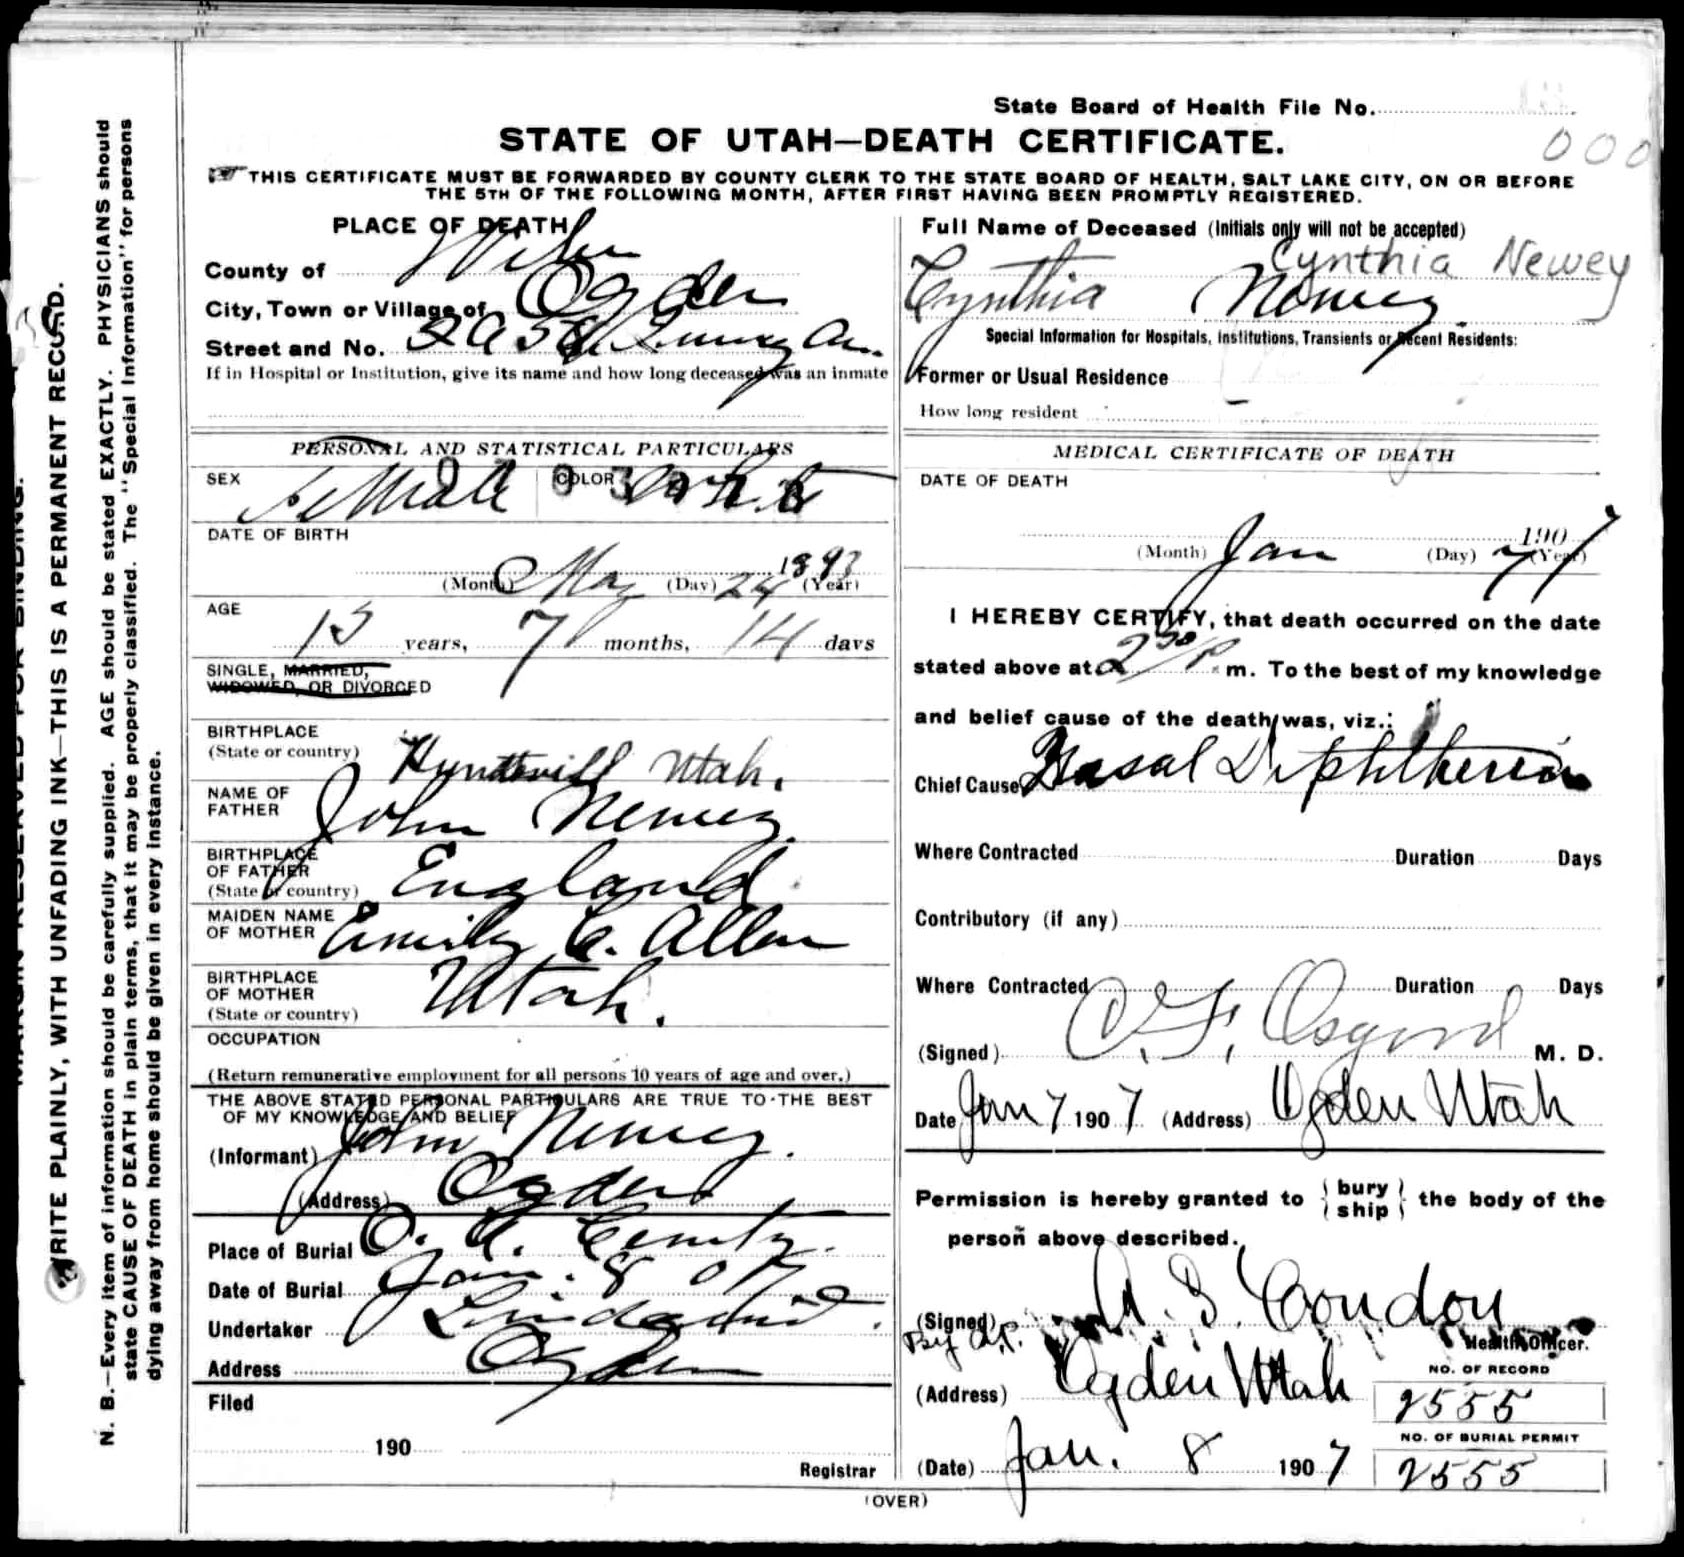 State Board of Health File No.
000
STATE OF UTAH—DEATH CERTIFICATE.
THIS CERTIFICATE MUST BE FORWARDED BY COUNTY CLERK TO THE STATE BOARD OF HEALTH, SALT LAKE CITY, ON OR BEFORE
THE 5TH OF THE FOLLOWING MONTH, AFTER FIRST HAVING BEEN PROMPTLY REGISTERED.
WRITE PLAINLY, WITH UNFADING INK—THIS IS A PERMANENT RECORD.
N. B.—Every item of information should be carefully supplied. AGE should be stated EXACTLY. PHYSICIANS should
state CAUSE OF DEATH in plain terms, that it may be properly classified. The "Special Information" for persons
dying away from home should be given in every instance.
PLACE OF DEATH
County of Weber
City, Town or Village of Ogden
Street and No. Quincy Av.
If in Hospital or Institution, give its name and how long deceased was an inmate
PERSONAL AND STATISTICAL PARTICULARS
SEX Female COLOR White
DATE OF BIRTH
(Month) May (Day) 24 1893 (Year)
AGE
13 years, 7 months, 14 days
SINGLE, MARRIED,
WIDOWED, OR DIVORCED
BIRTHPLACE
(State or country) Huntsvill Utah.
NAME OF
FATHER John Newey
BIRTHPLACE
OF FATHER
(State or country) England
MAIDEN NAME
OF MOTHER Emily C. Allen
BIRTHPLACE
OF MOTHER
(State or country) Utah.
OCCUPATION
(Return remunerative employment for all persons 10 years of age and over.)
THE ABOVE STATED PERSONAL PARTICULARS ARE TRUE TO THE BEST
OF MY KNOWLEDGE AND BELIEF
(Informant) John Newey.
(Address) Ogden
Place of Burial O.
Date of Burial Jan. 8 07
Undertaker Lindquist
Address Ogden
Filed
190
Registrar
Full Name of Deceased (Initials only will not be accepted)
Cynthia Newey
Cynthia Newey
Special Information for Hospitals, Institutions, Transients or Recent Residents:
Former or Usual Residence
How long resident
MEDICAL CERTIFICATE OF DEATH
DATE OF DEATH
(Month) Jan (Day) 7 1907 (Year)
I HEREBY CERTIFY, that death occurred on the date
stated above at 2 30 P m. To the best of my knowledge
and belief cause of the death was, viz.:
Chief Cause Nasal Diphtheria
Where Contracted Duration Days
Contributory (if any)
Where Contracted Duration Days
(Signed) Osgood M. D.
Date Jan 7 1907 (Address) Ogden Utah
Permission is hereby granted to { bury ship } the body of the
person above described.
(Signed) A. S. Condon
By
Health Officer.
(Address) Ogden Utah
NO. OF RECORD
2555
NO. OF BURIAL PERMIT
2555
(Date) Jan. 8 1907
(OVER)